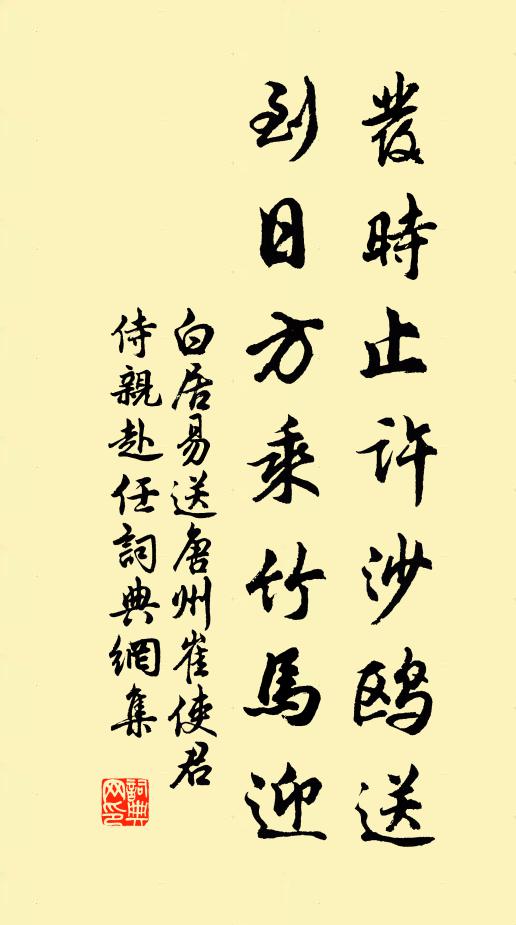 發時止許沙鷗送
到日方乘竹馬迎
白居易送唐州崔使君
侍親赴任詞典網集
詞典
网印